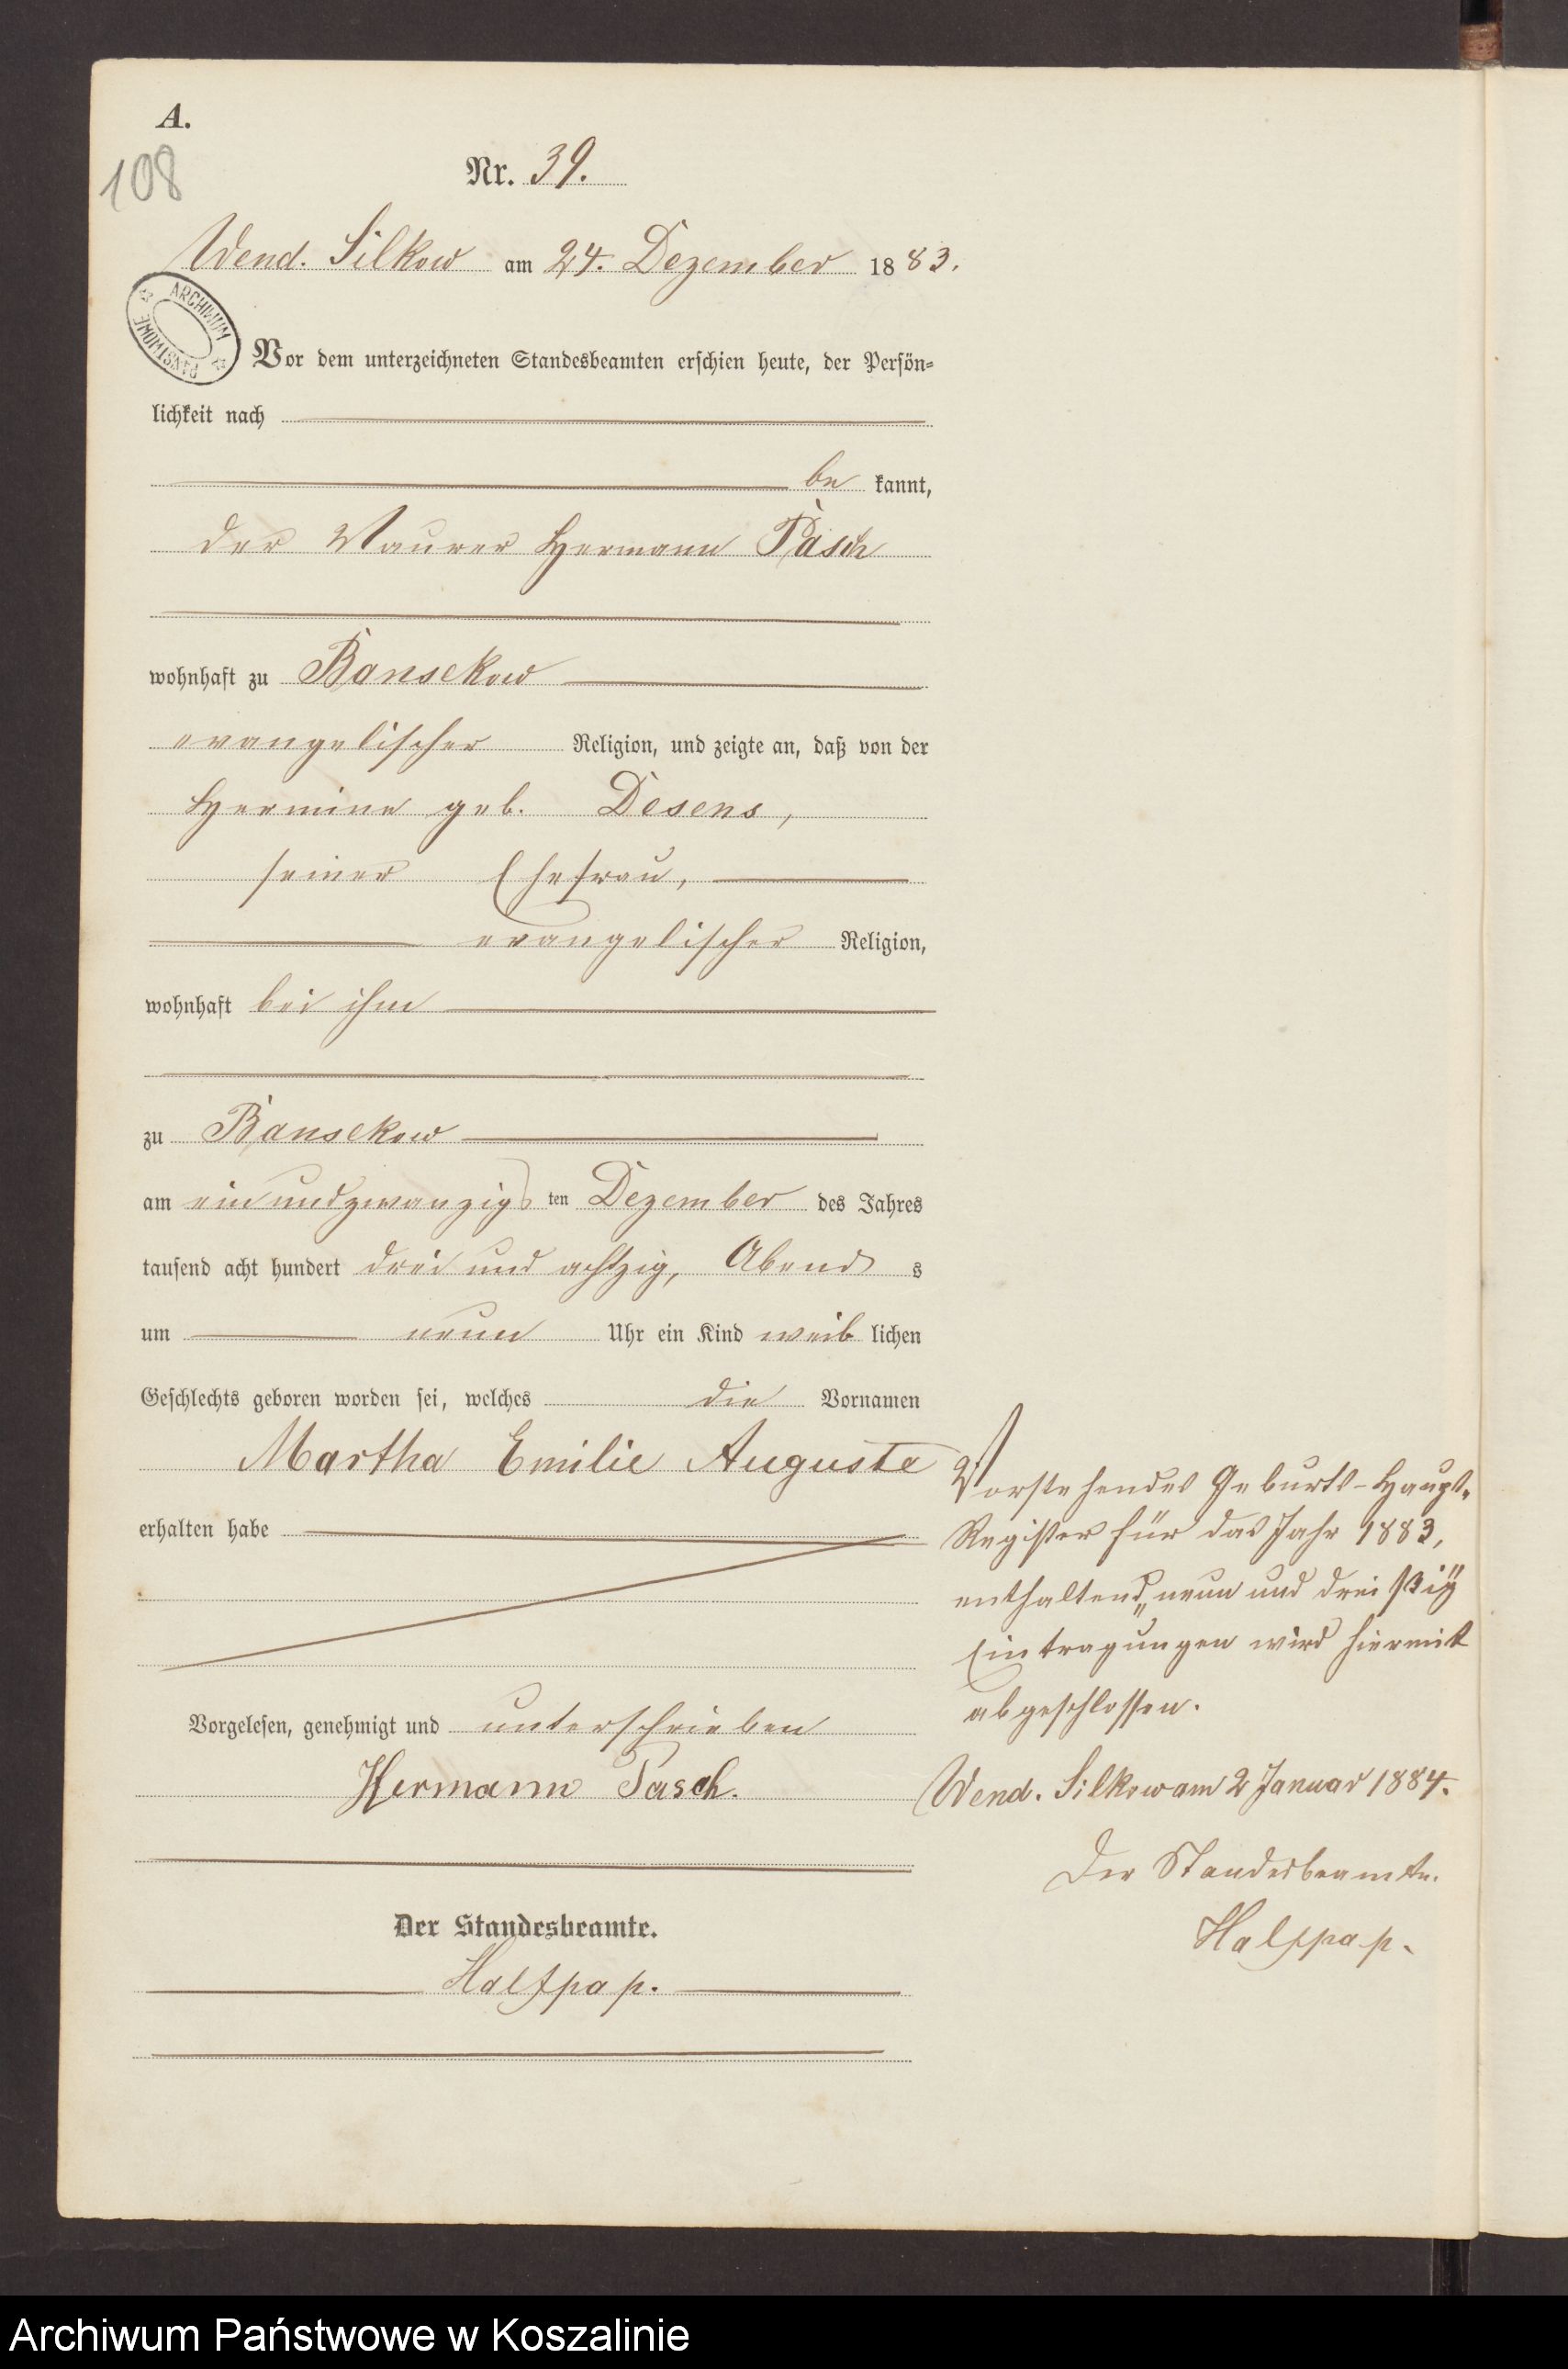 A.
108
Nr. 39.
Wend. Silkow am 24. Dezember 1883.
ARCHIWUM PAŃSTWOWE
Vor dem unterzeichneten Standesbeamten erschien heute, der Persön-
lichkeit nach
be kannt,
der Maurer Hermann Pasch
wohnhaft zu Bansekow
evangelischer Religion, und zeigte an, daß von der
Hermine geb. Desens,
seiner Ehefrau,
evangelischer Religion,
wohnhaft bei ihm
zu Bansekow
am ein und zwanzigs ten Dezember des Jahres
tausend acht hundert drei und achtzig, Abend s
um neun Uhr ein Kind weib lichen
Geschlechts geboren worden sei, welches die Vornamen
Martha Emilie Auguste
erhalten habe
Vorgelesen, genehmigt und unterschrieben
Hermann Pasch.
Der Standesbeamte.
Halfpap.
Vorstehendes Geburts-Haupt-
Register für das Jahr 1883,
enthaltend „neun und dreißig"
Eintragungen wird hiermit
abgeschlossen.
Wend. Silkow am 2 Januar 1884.
Der Standesbeamte.
Halfpap.
Archiwum Państwowe w Koszalinie